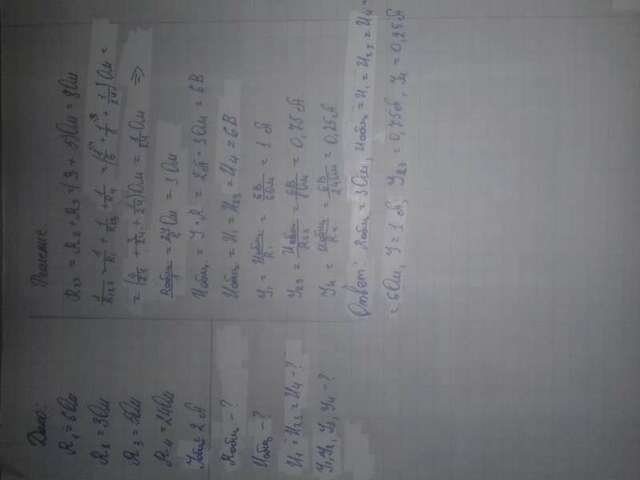 Дано:
R₁ = 6 Ом
R₂ = 3 Ом
R₃ = 5 Ом
R₄ = 24 Ом
Jобщ = 2 А
Rобщ - ?
Uобщ - ?
U₁ = U₂₃ = U₄ - ?
J₁, J₂, J₃, J₄ - ?
Решение
R₂₃ = R₂ + R₃ = (3 + 5) Ом = 8 Ом
1/R₁₂₃ = 1/R₁ + 1/R₂₃ + 1/R₄ = (1/6 + 1/8 + 1/24) Ом =
= (4/24 + 3/24 + 1/24) Ом = 1/24 Ом =>
Rобщ = 24/8 Ом = 3 Ом
Uобщ = J · R = 2А · 3 Ом = 6 В
Uобщ = U₁ = U₂₃ = U₄ = 6 В
J₁ = Uобщ/R₁ = 6В/6Ом = 1 А
J₂₃ = Uобщ/R₂₃ = 6В/8Ом = 0,75 А
J₄ = Uобщ/R₄ = 6В/24Ом = 0,25 А
Ответ: Rобщ = 3 Ом, Uобщ = U₁ = U₂₃ = U₄ =
= 6 Ом, J = 1 А, J₂₃ = 0,75 А, J₄ = 0,25 А